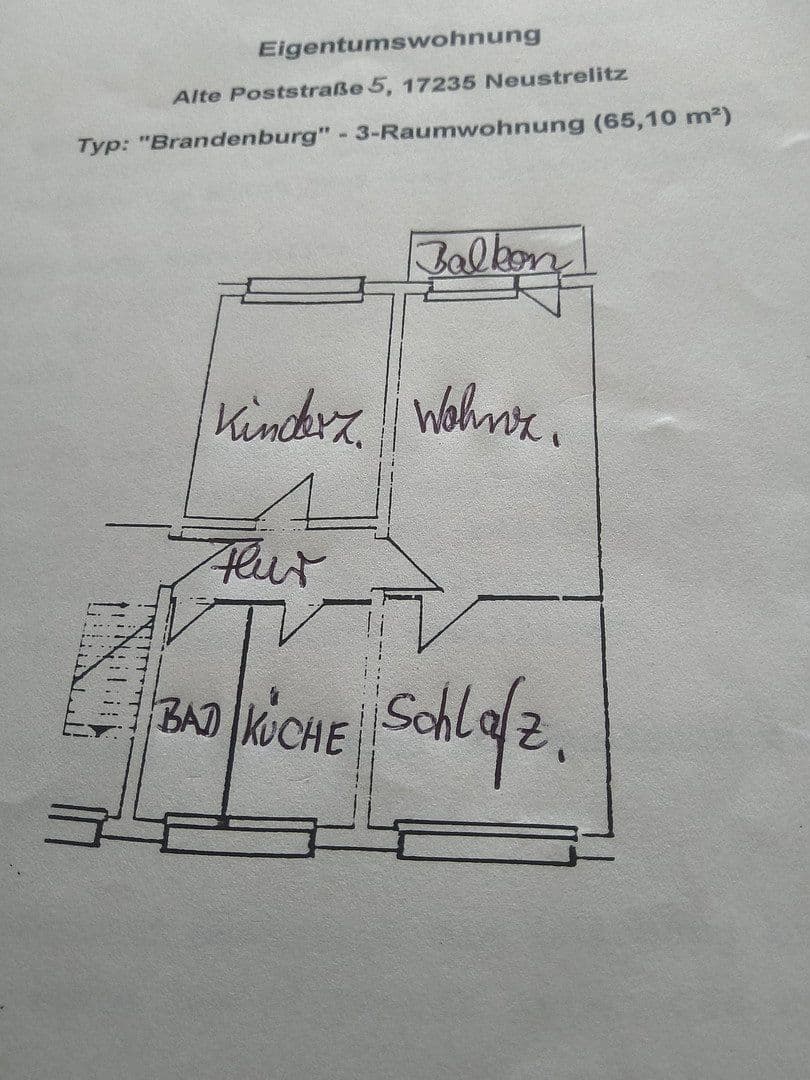 Eigentumswohnung
Alte Poststraße 5, 17235 Neustrelitz
Typ: "Brandenburg" - 3-Raumwohnung (65,10 m²)
Balkon
Kinderz.
Wohnz.
Flur
BAD
KÜCHE
Schlafz.